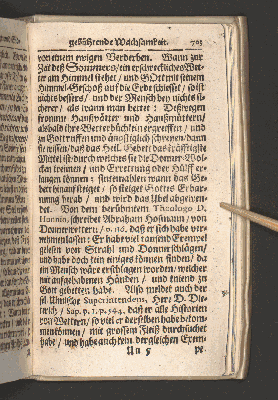 gebührende Wachsamkeit. 705
von einem ewigen Verderben. Wann zur
Zeit deß Sommers / ein erschreckliches Wet-
ter am Himmel stehet / und GOtt mit seinem
Himmel-Geschoß auf die Erde schiesset / so ist
nichts bessers / und der Mensch bey nichts si-
cherer / als wann man betet: Deßwegen
fromme Hausvätter und Hausmüttern /
alsbald ihre Wetterbüchlein ergreiffen / und
zu Gott ruffen und ängstiglich schreyen / dann
sie wissen / daß das Heil. Gebet das kräfftigste
Mittel ist durch welches sie die Donner-Wol-
cken trennen / und Errettung oder Hülff er-
langen können: sintemahlen wann das Ge-
bet hinauf steiget / so steiget Gottes Erbar-
mung herab / und wird das Ubel abgewen-
det. Von dem berühmten Theologo D.
schreibet Abraham Hosmann / von
Donnerwettern / daß er sich habe ver-
nemmen lassen: Er habe viel tausend Exempel
gelesen von Strahl und Donnerschlägen /
und habe doch kein einiges können finden / da
ein Mensch wäre erschlagen worden / welcher
mit aufgehabenen Händen / und kniend zu
Gott gebetten habe. Also meldet auch der
sel. Superintendens, Herr D. Die-
terich / daß er alle Historien
von Wettern / so viel er derselben habe bekom-
men können / mit grossem Fleiß durchsuchet
habe / und habe auch kein dergleichen Exem-
pe-